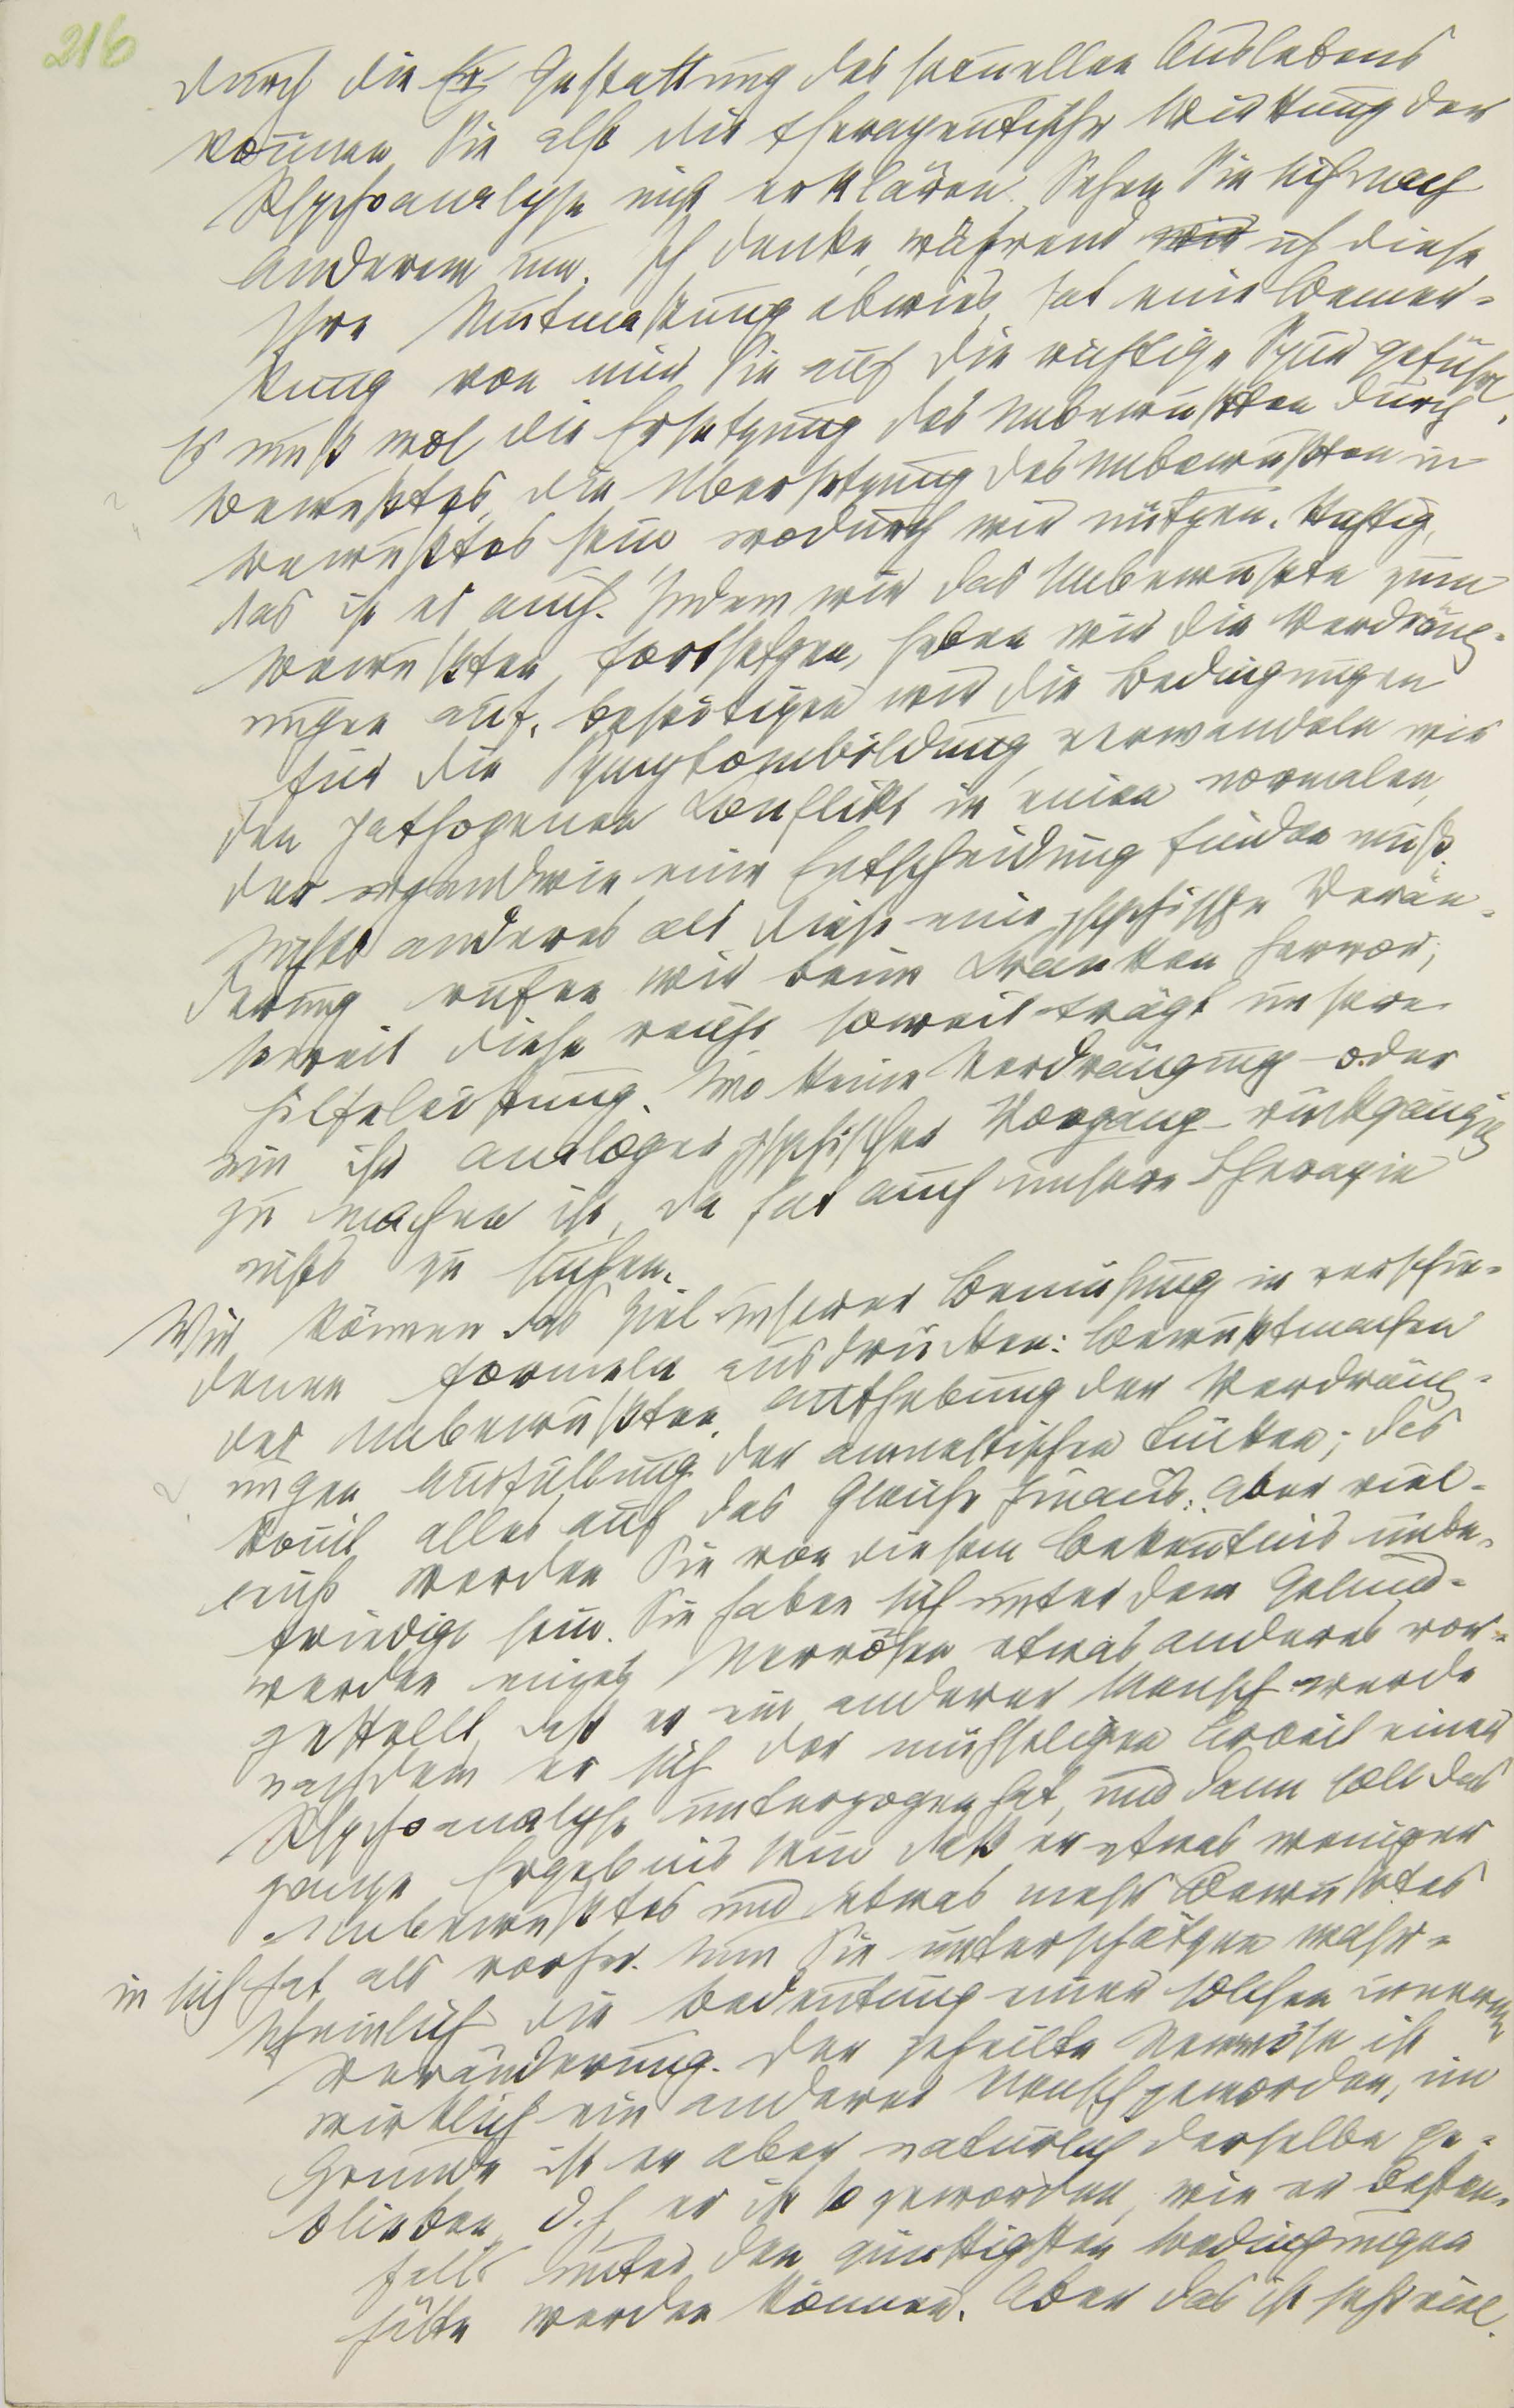 216
durch die Er Gestattung des sexuellen Auslebens
können Sie also die therapeutische Wirkung der
Psychoanalyse nicht erklären. Sehen Sie sich nach
anderem um. Ich denke, während wir ich diese
Ihre Mutmaßung abwies, hat eine Bemer-
kung von mir Sie auf die richtige Spur geführt.
Es muß wol die Ersetzung des Unbewußten durch
Bewußtes, die Übersetzung des Unbewußten in
Bewußtes sein, wodurch wir nützen. Richtig,
das ist es auch. Indem wir das Unbewußte zum
Bewußten fortsetzen, heben wir die Verdräng-
ungen auf, beseitigen wir die Bedingungen
für die Symptombildung, verwandeln wir
den pathogenen Konflikt in einen normalen,
der irgendwie eine Entscheidung finden muß.
Nichts anderes als diese eine psychische Verän-
derung rufen wir beim Kranken hervor;
soweit diese reicht soweit trägt unsere
Hilfeleistung. Wo keine Verdrängung - oder
ein ihr analoger psychischer Vorgang - rückgängig
zu machen ist, da hat auch unsere Therapie
nichts zu suchen.
Wir können das Ziel unserer Bemühung in verschie-
denen Formeln ausdrücken: Bewußtmachen
des Unbewußten, Aufhebung der Verdräng-
ungen Ausfüllung der amnestischen Lücken; das
kommt alles auf das Gleiche hinaus. Aber viel-
leicht werden Sie von diesem Bekenntnis unbe-
friedigt sein. Sie haben sich unter dem Gesund-
werden eines Nervösen etwas anderes vor-
gestellt, daß er ein anderer Mensch werde
nachdem er sich der mühseligen Arbeit einer
Psychoanalyse unterzogen hat, und dann soll das
ganze Ergebnis sein daß er etwas weniger
Unbewußtes und etwas mehr Bewußtes
in sich hat als vorher. Nun Sie unterschätzen wahr-
scheinlich die Bedeutung einer solchen inneren
Veränderung. Der geheilte Nervöse ist
wirklich ein anderer Mensch geworden, im
Grunde ist er aber natürlich derselbe ge-
blieben, d.h. er ist so geworden, wie er besten-
falls unter den günstigsten Bedingungen
hätte werden können. Aber das ist sehr viel.